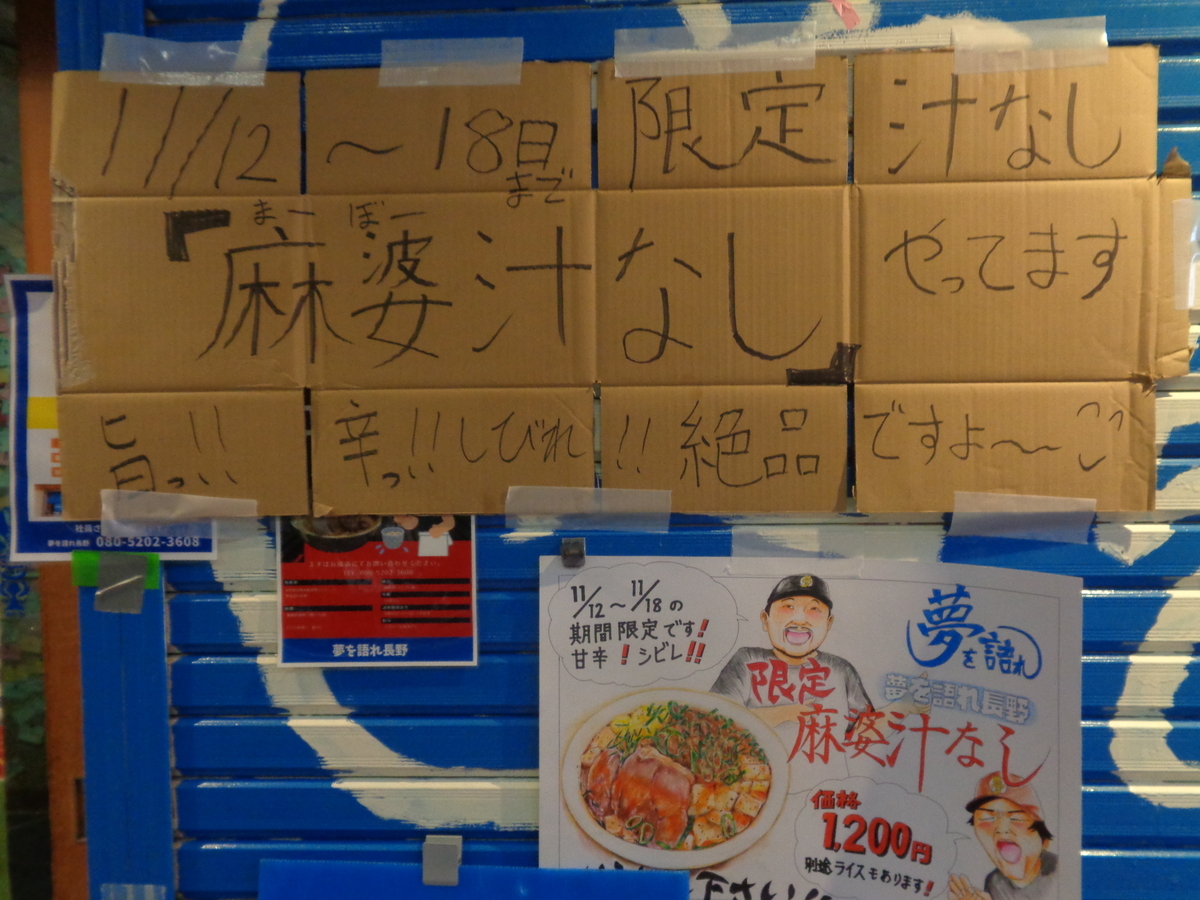 11/12 〜 18日まで 限定 汁なし
まーぼー
『麻婆汁なし』 やってます
旨っ!! 辛っ!! しびれ!! 絶品ですよ〜
夢を語れ長野 080-5202-3608
夢を語れ長野
11/12〜11/18の
期間限定です!
甘辛!シビレ!!
夢を語れ
夢を語れ長野
限定
麻婆汁なし
価格
1,200円
別途ライスもあります!